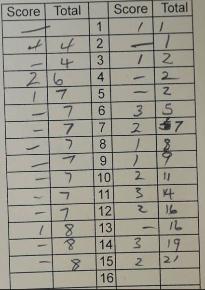 Score Total Score Total
— 1 1 1
4 4 2 — 1
— 4 3 1 2
2 6 4 — 2
1 7 5 — 2
— 7 6 3 5
— 7 7 2 7
— 7 8 1 8
— 7 9 1 9
— 7 10 2 11
— 7 11 3 14
— 7 12 2 16
1 8 13 — 16
— 8 14 3 19
— 8 15 2 21
16